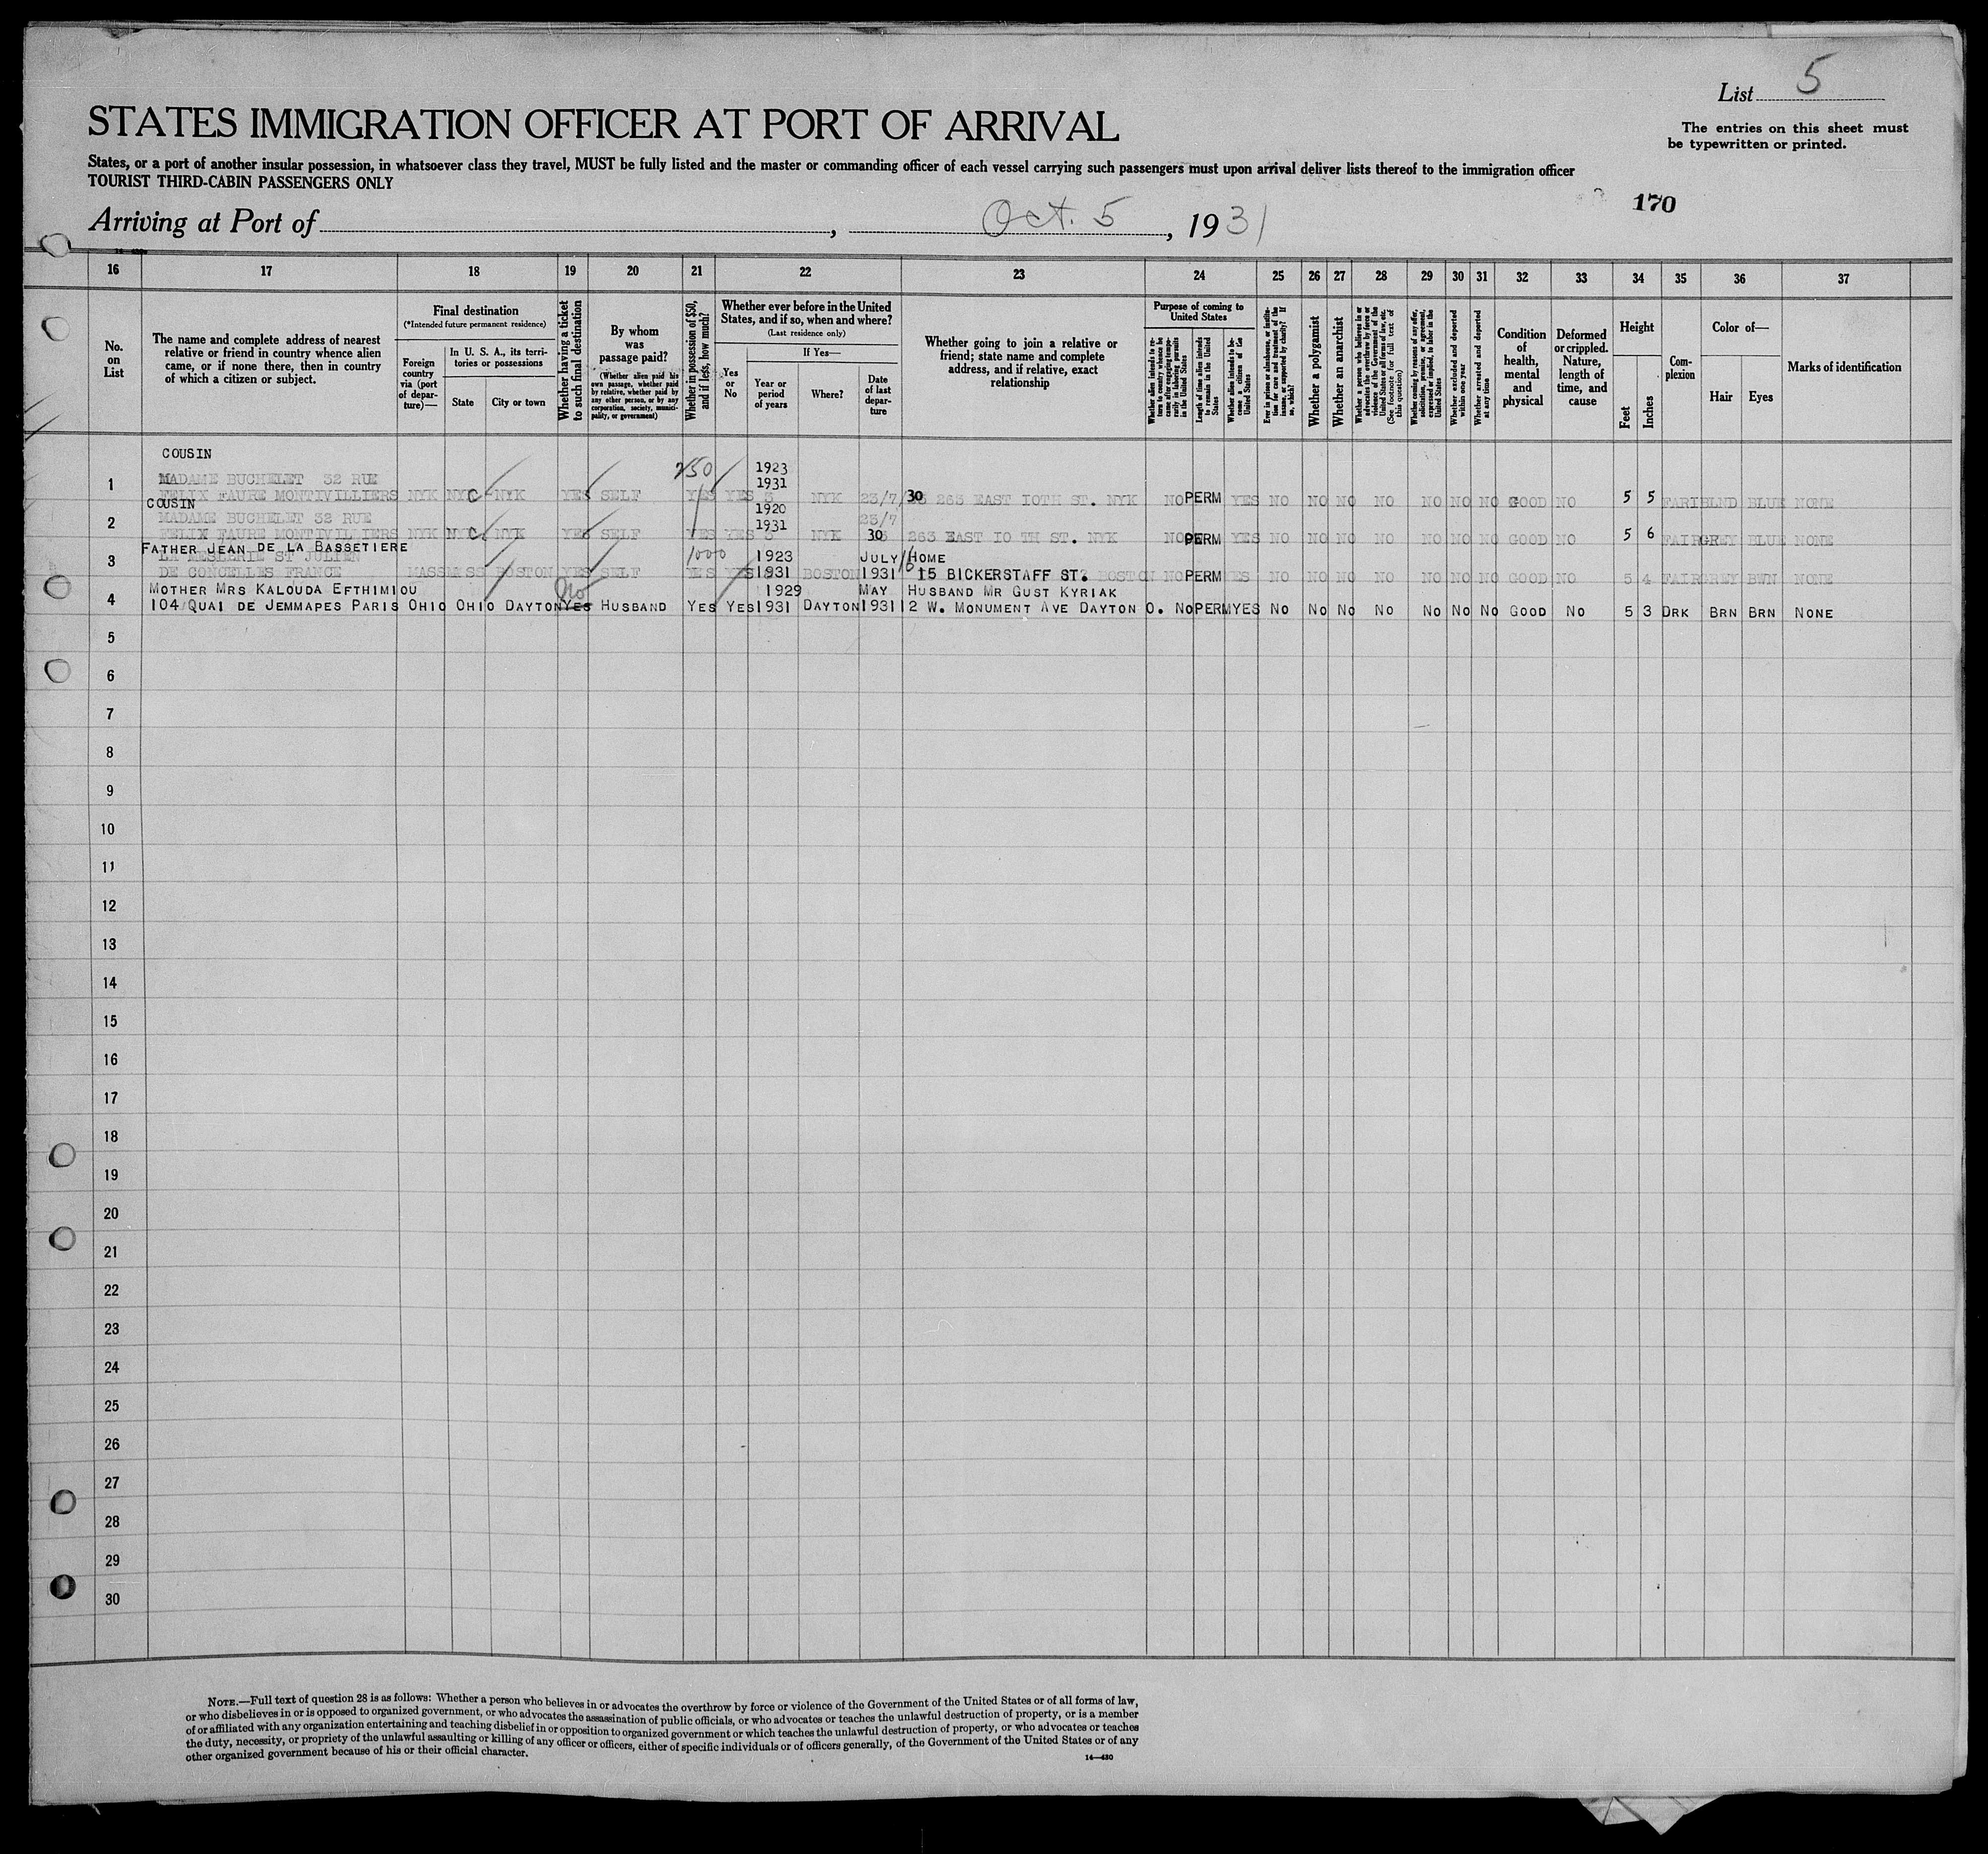 List 5
The entries on this sheet must
be typewritten or printed.
STATES IMMIGRATION OFFICER AT PORT OF ARRIVAL
States, or a port of another insular possession, in whatsoever class they travel, MUST be fully listed and the master or commanding officer of each vessel carrying such passengers must upon arrival deliver lists thereof to the immigration officer
TOURIST THIRD-CABIN PASSENGERS ONLY
170
Arriving at Port of , Oct. 5 , 1931
16 17 18 19 20 21 22 23 24 25 26 27 28 29 30 31 32 33 34 35 36 37
No.
on
List
The name and complete address of nearest
relative or friend in country whence alien
came, or if none there, then in country
of which a citizen or subject.
Final destination
(*Intended future permanent residence)
Foreign
country
via (port
of depar-
ture)—
In U. S. A., its terri-
tories or possessions
State
City or town
Whether having a ticket
to such final destination
By whom
was
passage paid?
(Whether alien paid his
own passage, whether paid
by relative, whether paid by
any other person, or by any
corporation, society, munici-
pality, or government)
Whether in possession of $50,
and if less, how much?
Whether ever before in the United
States, and if so, when and where?
(Last residence only)
Yes
or
No
If Yes—
Year or
period
of years
Where?
Date
of last
depar-
ture
Whether going to join a relative or
friend; state name and complete
address, and if relative, exact
relationship
Purpose of coming to
United States
Whether alien intends to re-
turn to country whence he
came after engaging tempo-
rarily in laboring pursuits
in the United States
Length of time alien intends
to remain in the United
States
Whether alien intends to be-
come a citizen of the
United States
Ever in prison or almshouse, or institu-
tion for care and treatment of the
insane, or supported by charity? If
so, which?
Whether a polygamist
Whether an anarchist
Whether a person who believes in or
advocates the overthrow by force or
violence of the Government of the
United States or all forms of law, etc.
(See footnote for full text of
this question)
Whether coming by reason of any offer,
solicitation, promise, or agreement,
expressed or implied, to labor in the
United States
Whether excluded and deported
within one year
Whether arrested and deported
at any time
Condition
of
health,
mental
and
physical
Deformed
or crippled.
Nature,
length of
time, and
cause
Height
Feet
Inches
Com-
plexion
Color of—
Hair
Eyes
Marks of identification
COUSIN
MADAME BUCHELET 32 RUE 250 1923
1 1931
FELIX FAURE MONTIVILLIERS NYK NYC NYK YES SELF YES YES NYK 23/7/30 263 EAST 10TH ST. NYK NO PERM YES NO NO NO NO NO NO NO GOOD NO 5 5 FARI BLND BLUE NONE
COUSIN 1920
2 MADAME BUCHELET 32 RUE 1931 23/7
FELIX FAURE MONTIVILLIERS NYK NYC NYK YES SELF YES YES NYK 30 263 EAST 10 TH ST. NYK NO PERM YES NO NO NO NO NO NO NO GOOD NO 5 6 FAIR GREY BLUE NONE
FATHER JEAN DE LA BASSETIERE 1000 1923 JULY 16 HOME
3 LA MESLERIE ST JULIEN
DE CONCELLES FRANCE MASS MASS BOSTON YES SELF YES YES 1931 BOSTON 1931 15 BICKERSTAFF ST. BOSTON NO PERM YES NO NO NO NO NO NO NO GOOD NO 5 4 FAIR GREY BWN NONE
MOTHER MRS KALOUDA EFTHIMIOU No 1929 MAY HUSBAND MR GUST KYRIAK
4 104 QUAI DE JEMMAPES PARIS OHIO OHIO DAYTON YES HUSBAND YES YES 1931 DAYTON 1931 12 W. MONUMENT AVE DAYTON O. NO PERM YES NO NO NO NO NO NO NO GOOD NO 5 3 DRK BRN BRN NONE
5
6
7
8
9
10
11
12
13
14
15
16
17
18
19
20
21
22
23
24
25
26
27
28
29
30
NOTE.—Full text of question 28 is as follows: Whether a person who believes in or advocates the overthrow by force or violence of the Government of the United States or of all forms of law,
or who disbelieves in or is opposed to organized government, or who advocates the assassination of public officials, or who advocates or teaches the unlawful destruction of property, or is a member
of or affiliated with any organization entertaining and teaching disbelief in or opposition to organized government or which teaches the unlawful destruction of property, or who advocates or teaches
the duty, necessity, or propriety of the unlawful assaulting or killing of any officer or officers, either of specific individuals or of officers generally, of the Government of the United States or of any
other organized government because of his or their official character.
14—430